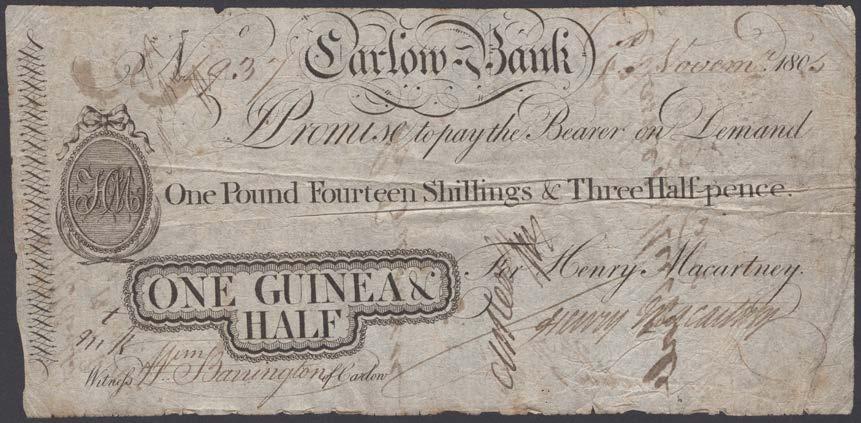 Carlow Bank
Novemr. 180
I Promise to pay the Bearer on Demand
HM
One Pound Fourteen Shillings & Three Half-pence.
For Henry Macartney.
ONE GUINEA &
HALF
Henry Macartney
Witness Wm Barrington of Carlow